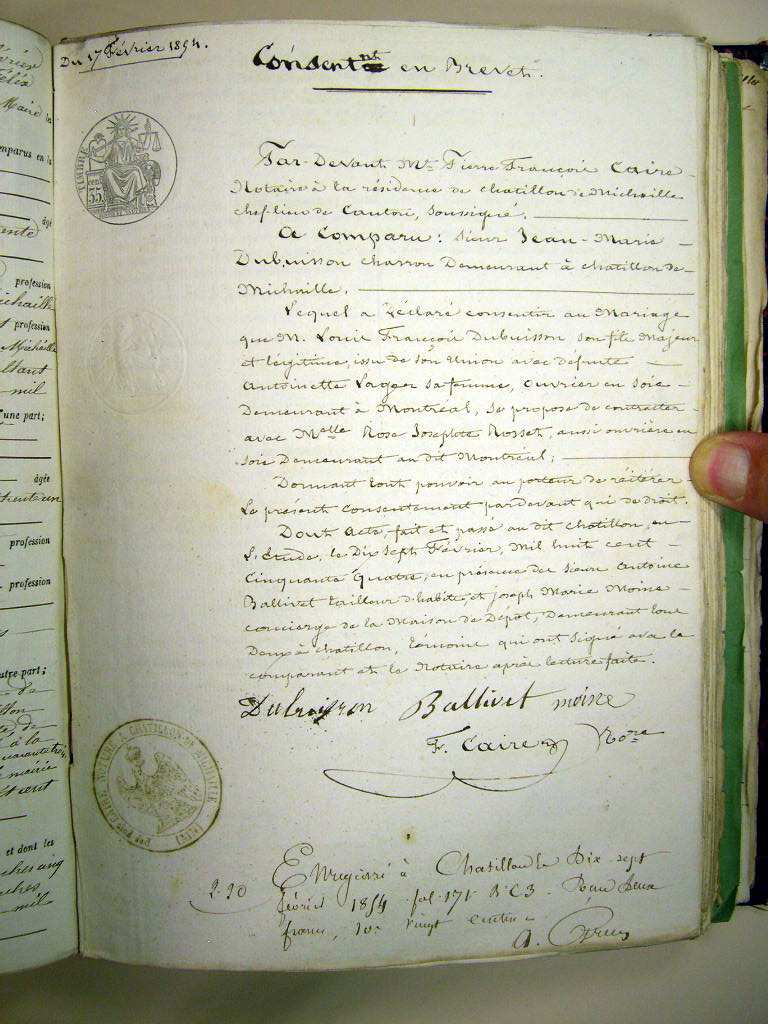 Du 17 Février 1854.
Consentnt en Brevet.
TIMBRE
35
Par-Devant Me Pierre François Caire
Notaire à la résidence de Chatillon de Michaille
chef-lieu de Canton, soussigné.
A Comparu: Sieur Jean-Marie
Dubuisson charron Demeurant à chatillon de
Michaille.
Lequel a Déclaré consentir au Mariage
que M. Louis François Dubuisson son fils Majeur
et légitime, issu de son union avec défunte
Antoinette Lager sa femme, ouvrier en soie
Demeurant à Montréal, se propose de contracter
avec Melle Rose Josephte Rosset, aussi ouvrière en
soie Demeurant au dit Montreal;
Donnant tout pouvoir au porteur de réitérer
Le présent consentement pardevant qui de droit.
Dont Acte, fait et passé au dit Chatillon, en
L'Etude, le Dix Sept Février, Mil huit cent
Cinquante Quatre, en présence des sieurs Antoine
Ballivet tailleur d'habits, et Joseph Marie Moine
concierge de la Maison de Dépôt, Demeurant tous
Deux à chatillon, témoins qui ont signé avec le
comparant et le Notaire après lecture faite.
Dubuisson Ballivet moine
F. Caire Nore
NOTAIRE A CHATILLON DE MICHAILLE (AIN)
2.20
Enregistré à Chatillon le Dix-sept
février 1854 fol. 171 Ro C3. Reçu Deux
francs, Dix vingt centimes
profession
profession
mil
d'une part;
âgée
profession
profession
autre part;
et dont les
mil